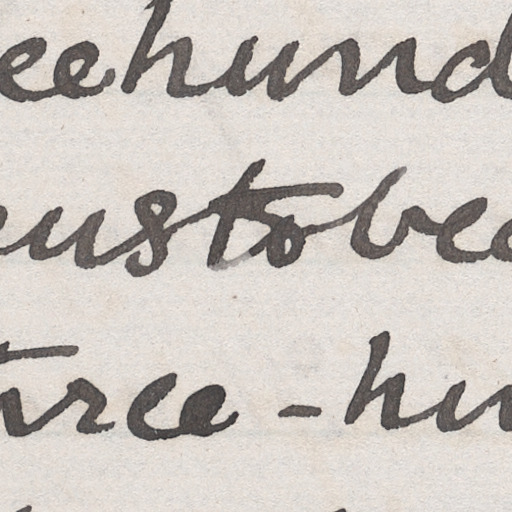 eehund
eustobee
hree-hu